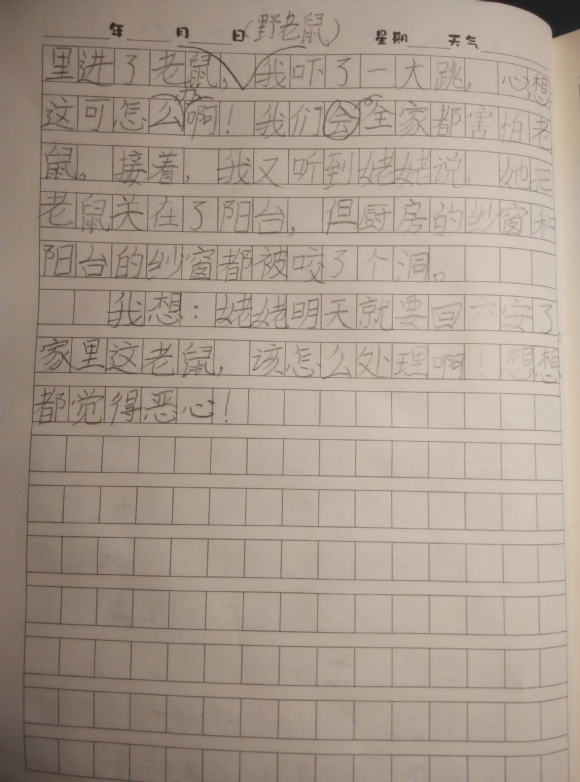 年 月 日 (野老鼠) 星期 天气
里进了老鼠，我吓了一大跳，心想
这可怎么办啊！我们会全家都害怕老
鼠。接着，我又听到姥姥说，她把
老鼠关在了阳台，但厨房的纱窗和
阳台的纱窗都被咬了个洞。
我想：姥姥明天就要回六安了
家里这老鼠，该怎么处理啊！想想
都觉得恶心！